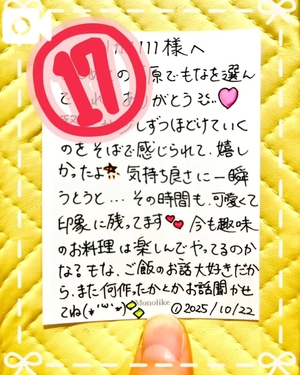 11111111様へ
の原でもなを選ん
で ありがとう
しずつほどけていく
のをそばで感じられて、嬉し
かったよ 気持ち良さに一瞬
うとうと… その時間も、可愛くて
印象に残ってます 今も趣味
のお料理は楽しんでやってるのか
なる もな、ご飯のお話大好きだか
ら、また何作ったかとかお話聞かせ
てね(*'ω'*) Monolike ①2025/10/22
⑰